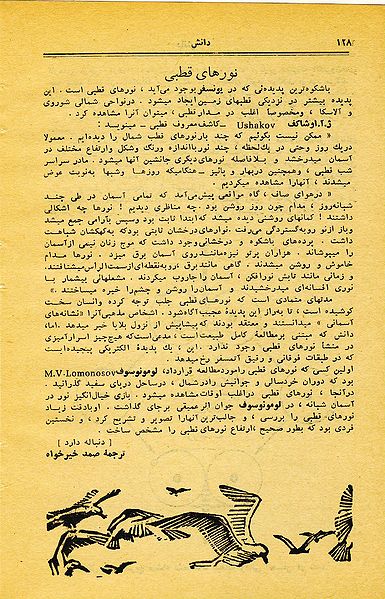 ۱۲۸
دانش
نورهای قطبی
باشکوه‌ترین پدیده‌ئی که در یونسفر بوجود می‌آید ، نورهای قطبی است . این
پدیده بیشتر در نزدیکی قطبهای زمین ایجاد میشود . در نواحی شمالی شوروی
و آلاسکا ، ومخصوصاً اغلب در مدار قطبی ، میتوان آنرا مشاهده کرد .
Ushakov ـ کاشف معروف قطبی ـ مینویسد :
« ممکن نیست بگوئیم که چند بار نورهای قطب شمال را دیده‌ایم . معمولا
دریك روز وحتی در یك‌لحظه ، چند نور با اندازه ورنگ وشکل وارتفاع مختلف در
آسمان میدرخشد و بلافاصله نورهای دیگری جانشین آنها میشود . مادر سراسر
شب قطبی ، وهمچنین دربهار و پائیز ـ هنگامیکه روزها وشبها به‌نوبت عوض
میشدند ، آنهارا مشاهده میکردیم .
« درهوای صاف ، گاه مواقعی پیش‌می‌آمد که تمامی آسمان در طی چند
شبانه‌روز ، مدام چون روز روشن بود . چه مناظری دیدیم ! نورها چه اشکالی
داشتند ! کمانهای روشنی دیده میشد که ابتدا ثابت بود وسپس بآرامی جمع میشد
وباز از نو روبه گستردگی می‌رفت . نوارهای درخشان ثابتی بود که به کهکشان شباهت
داشت . پرده‌های باشکوه و درخشانی وجود داشت که موج زنان نیمی از آسمان
را میپوشاند . هزاران پرتو نیزه‌مانند روی آسمان برق میزد . نورها مدام
خاموش و روشن میشدند . گاهی مانند برق نور به نقطه‌ای از سمت‌الرأس میشتافتند.
و زمانی مانند تابش نورافکن ، آسمان را جاروب میکردند . مشعلهائی بیشمار با
نوری افسانه‌ای میدرخشیدند و آسمان را روشن و چشم را خیره میساختند . »
مدتهای متمادی است که نورهای قطبی جلب توجه کرده وانسان سخت
کوشیده است ، تا به‌راز این پدیدهٔ عجیب آگاه شود . اشخاص مذهبی آنرا «نشانه‌های
آسمانی » میدانستند و معتقد بودند که پیشاپیش از نزول بلایا خبر میدهد . اما،
دانش که مبتنی بر مطالعهٔ کامل طبیعت است ، مدعی است که هیچ چیز اسرارآمیزی
در منشأ نورهای قطبی وجود ندارد . این ، یك پدیدهٔ الکتریکی پیچیده‌ایست
که در طبقات فوقانی و رقیق آتمسفر رخ میدهد .
اولین کسی که نورهای قطبی را مورد مطالعه قرارداد، لومونوسوف M.V. Lomonosov
بود که دوران خردسالی و جوانیش رادرشمال ، درساحل دریای سفید گذرانید .
درآنجا ، نورهای قطبی دراغلب اوقات مشاهده میشود . بازی خیال‌انگیز نور در
آسمان شبانه ، در لومونوسوف جوان اثر عمیقی برجای گذاشت . او با دقت زیاد
نورهای قطبی را بررسی ، و جالب‌ترین آنهارا تصویر و تشریح کرد ، و نخستین
فردی بود که بطور صحیح ، ارتفاع نورهای قطبی را مشخص ساخت .
[ دنباله دارد ]
ترجمهٔ صمد خیرخواه